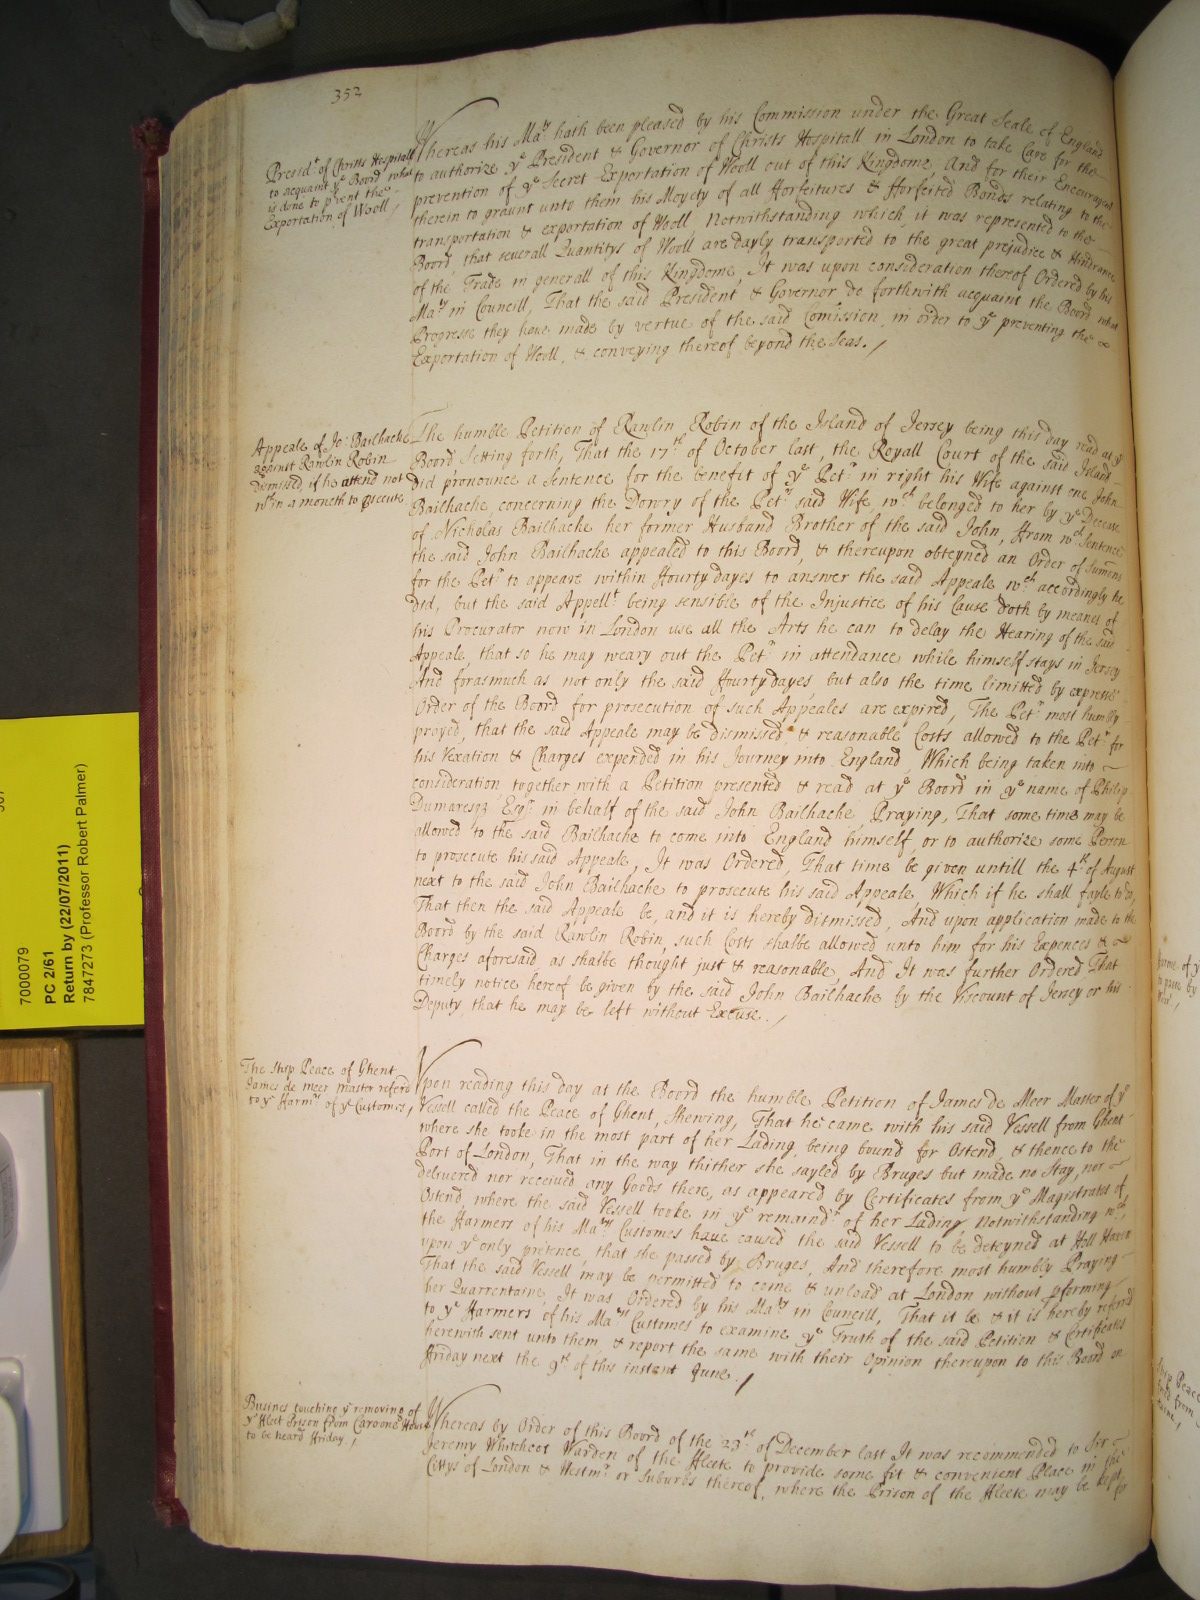 352
Presidt. of Christs Hospitall
to acquaint ye Board what
is done to pvent the
Exportation of Wooll /
Whereas his Maty hath been pleased by his Commission under the Great Seale of England
to authorize ye President & Governor of Christs Hospitall in London to take Care for the
prevention of ye Secret Exportation of Wooll out of this Kingdome, And for their Encouragemt
therein to graunt unto them his Moyety of all Forfeitures & Forfeited Bonds relating to the
transportation & exportation of Wooll, Notwithstanding which, it was represented to the
Board, that severall Quantitys of Wooll are dayly transported to the great prejudice & Hindrance
of the Trade in generall of this Kingdome, It was upon consideration thereof Ordered by his
Maty in Councill, That the said President & Governor do forthwith acquaint the Board what
Progresse they have made by vertue of the said Comission, in order to ye preventing the
Exportation of Wooll, & conveying thereof beyond the Seas. /
Appeale of Jo: Bailhache
against Rawlin Robin
dismissed if he attend not
wth in a moneth to psecute
The humble Petition of Rawlin Robin of the Island of Jersey being this day read at ye
Board setting forth, That the 17th of October last, the Royall Court of the said Island
did pronounce a Sentence for the benefit of ye Petr in right his Wife against one John
Bailhache, concerning the Dowry of the Petrs said Wife, wch belonged to her by ye Decease
of Nicholas Bailhache her former Husband Brother of the said John, From wch Sentence
the said John Bailhache appealed to this Board, & thereupon obteyned an Order of Sumons
for the Petr to appeare within Fourty dayes to answer the said Appeale wch accordingly he
did, but the said Appellt being sensible of the Injustice of his Cause doth by meanes of
his Procurator now in London use all the Arts he can to delay the Hearing of the said
Appeale, that so he may weary out the Petr in attendance while himself stays in Jersey
And forasmuch as not only the said Fourty dayes, but also the time limitted by expresse
Order of the Board for prosecution of such Appeales are expired, The Petr most humbly
prayed, that the said Appeale may be dismissed, & reasonable Costs allowed to the Petr for
his Vexation & Charges expended in his Journey into England, Which being taken into
consideration, together with a Petition presented & read at ye Board in ye name of Philip
Dumaresq Esqr in behalf of the said John Bailhache, Praying, That some time may be
allowed to the said Bailhache to come into England himself, or to authorize some Person
to prosecute his said Appeale, It was Ordered, That time be given untill the 4th of August
next to the said John Bailhache to prosecute his said Appeale, Which if he shall fayle to do,
That then the said Appeale be, and it is hereby dismissed, And upon application made to the
Board by the said Rawlin Robin, such Costs shalbe allowed unto him for his Expences &
Charges aforesaid as shalbe thought just & reasonable, And It was further Ordered That
timely notice hereof be given by the said John Bailhache by the Viscount of Jersey or his
Deputy, that he may be left without Excuse. /
The Shsp Peace of Ghent
James de meer master referd
to ye Farmrs of ye Customes,
Upon reading this day at the Board the humble Petition of James de Meer Master of ye
Vessell called the Peace of Ghent, Shewing, That he came with his said Vessell from Ghent
where she tooke in the most part of her Lading, being bound for Ostend, & thence to the
Port of London, That in the way thither she sayled by Bruges but made no Stay, nor
delivered nor received any Goods there, as appeared by Certificates from ye Magistrates of
Ostend, where the said Vessell tooke in ye remaindr of her Lading, Notwithstanding wch,
the Farmers of his Matys Customes have caused the said Vessell to be deteyned at Holl Haven
upon ye only pretence, that she passed by Bruges, And therefore most humbly Praying
That the said Vessell may be permitted to come & unload at London without pforming
her Quarrentaine, It was Ordered by his Maty in Councill, That it be & it is hereby referred
to ye Farmers of his Matys Customes to examine ye Truth of the said Petition & Certificates
herewith sent unto them, & report the same with their Opinion thereupon to this Board on
Friday next the 9th of this instant June. /
Busines touching ye removing of
ye Fleet Prison from Caroone House
to be heard Friday. /
Whereas by Order of this Board of the 23th of December last It was recommended to Sir
Jeremy Whitchcot Warden of the Fleete to provide some fit & convenient Place in the
Cittys of London & Westmr or Suburbs thereof, where the Prison of the Fleete may be kept
for
7000079
PC 2/61
Return by (22/07/2011)
7847273 (Professor Robert Palmer)